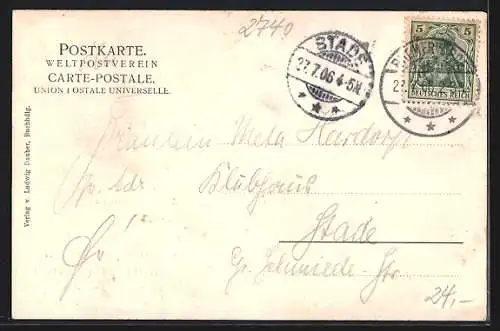 2740
POSTKARTE.
WELTPOSTVEREIN
CARTE-POSTALE,
UNION POSTALE UNIVERSELLE.
STADE
27.7.06 4-5N.
5 5
DEUTSCHES REICH
Verlag v. Ludwig Dauber, Buchhdlg.
Fräulein Meta Hardorff
Klubhaus
Stade
Gr. Schmiede-Str.
24,-